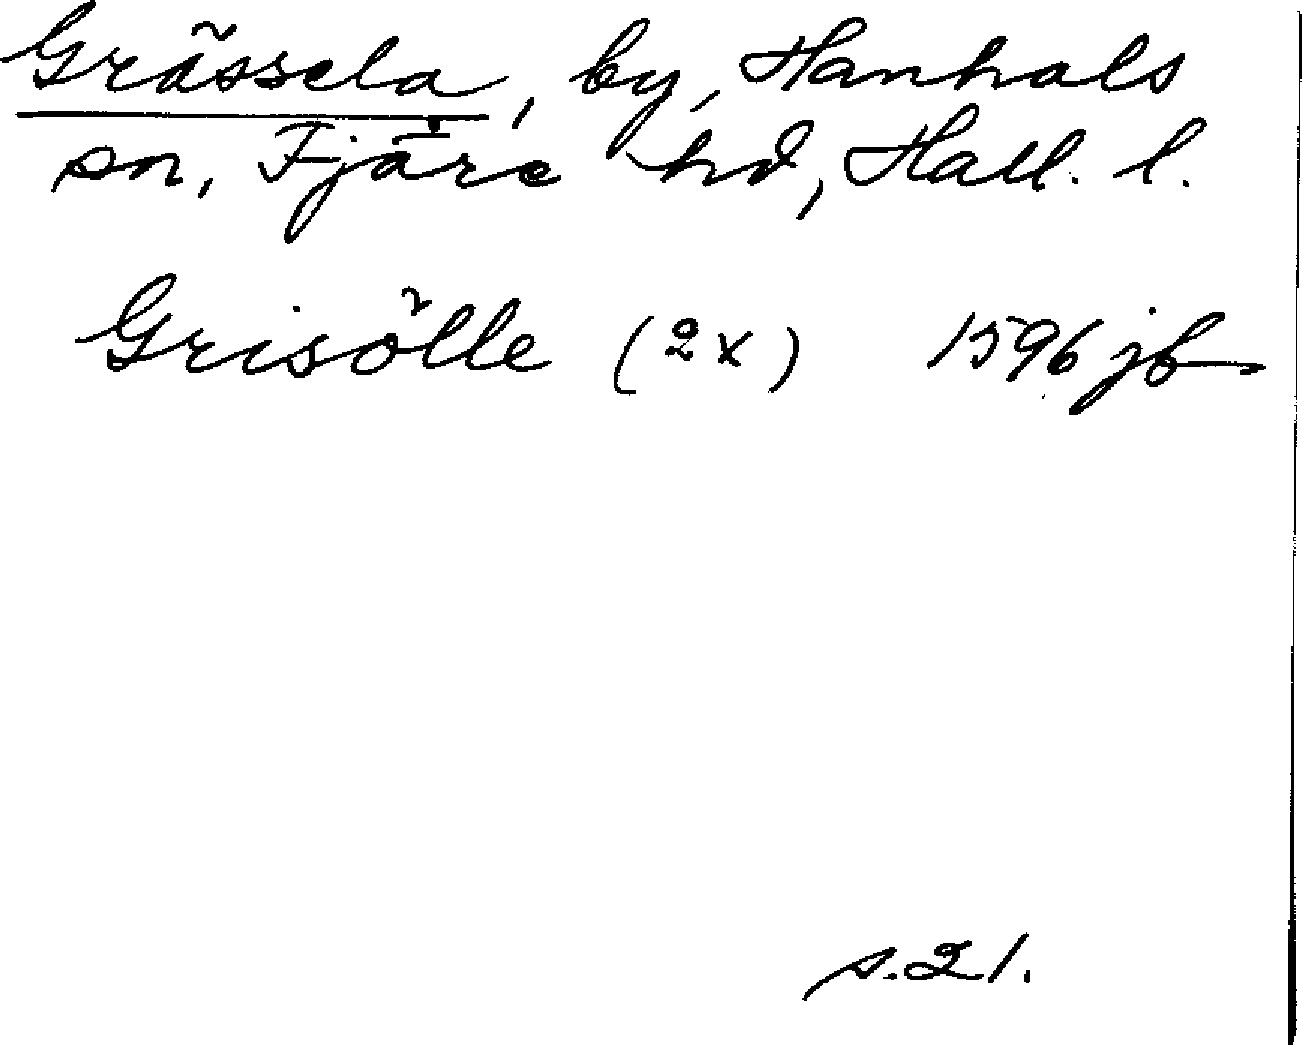 Grässela, by, Hanhals
sn, Fjäre hd, Hall. l.
Grisölle (2x) 1596 jb
s. 21.